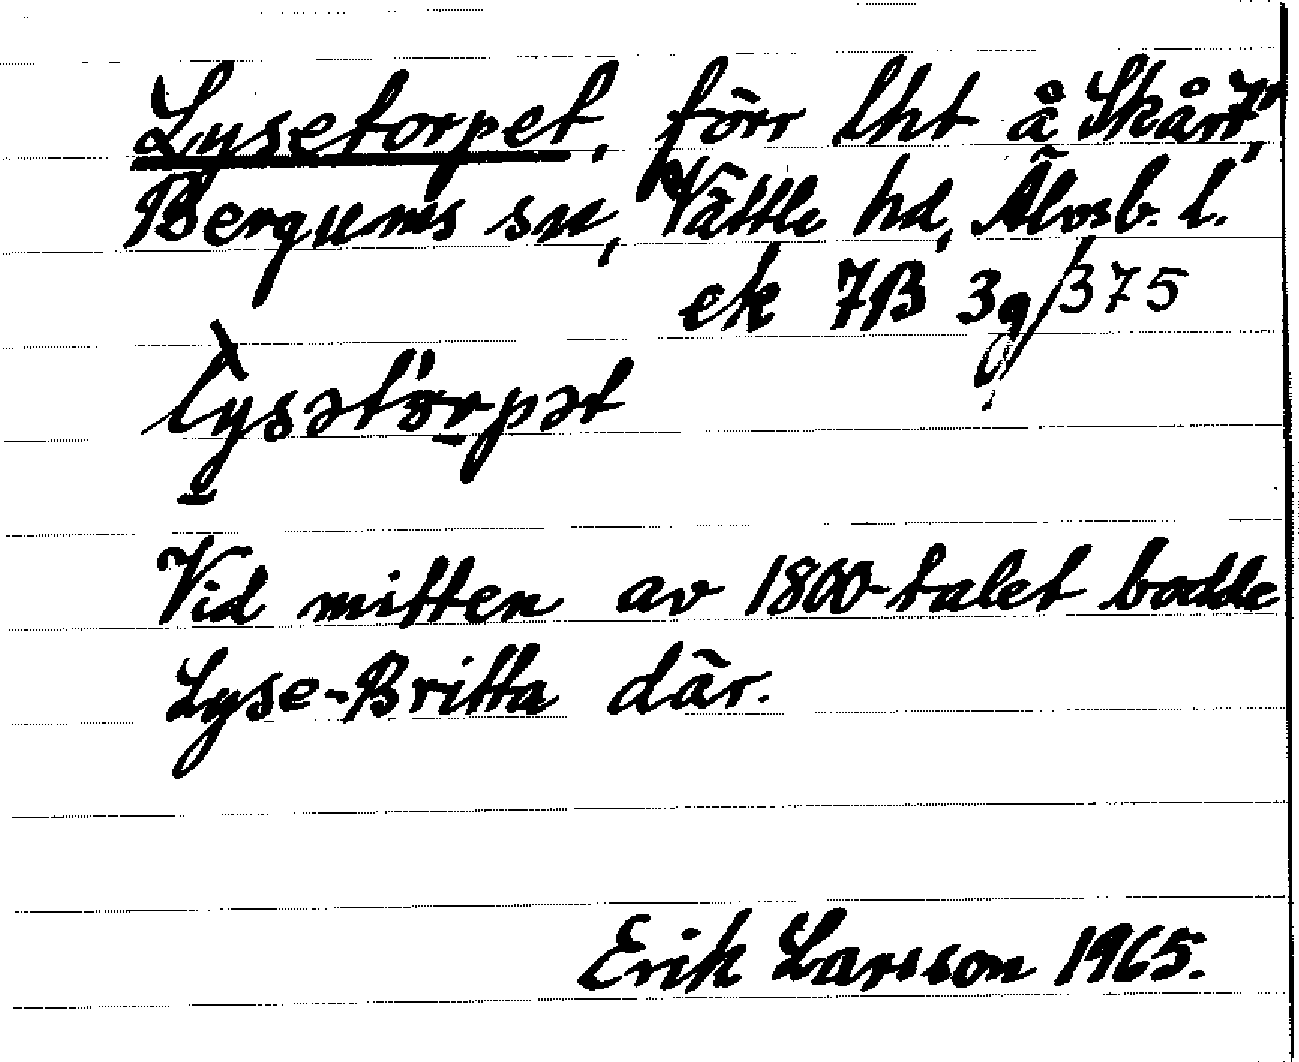 Lysetorpet, förr lht å Skårt,
Bergums sn, Vättle hd, Älvsb. l.
ek 7B 3g/375
lysətòrpət
Vid mitten av 1800-talet bodde
Lyse-Britta där.
Erik Larsson 1965.